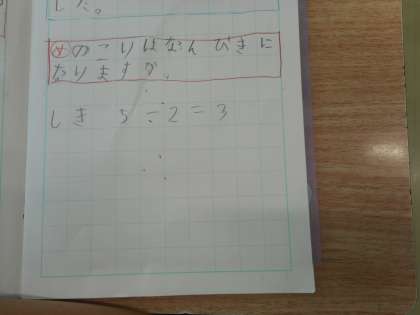 した。
のこりはなんびきに
なりますか。
しき 5-2=3